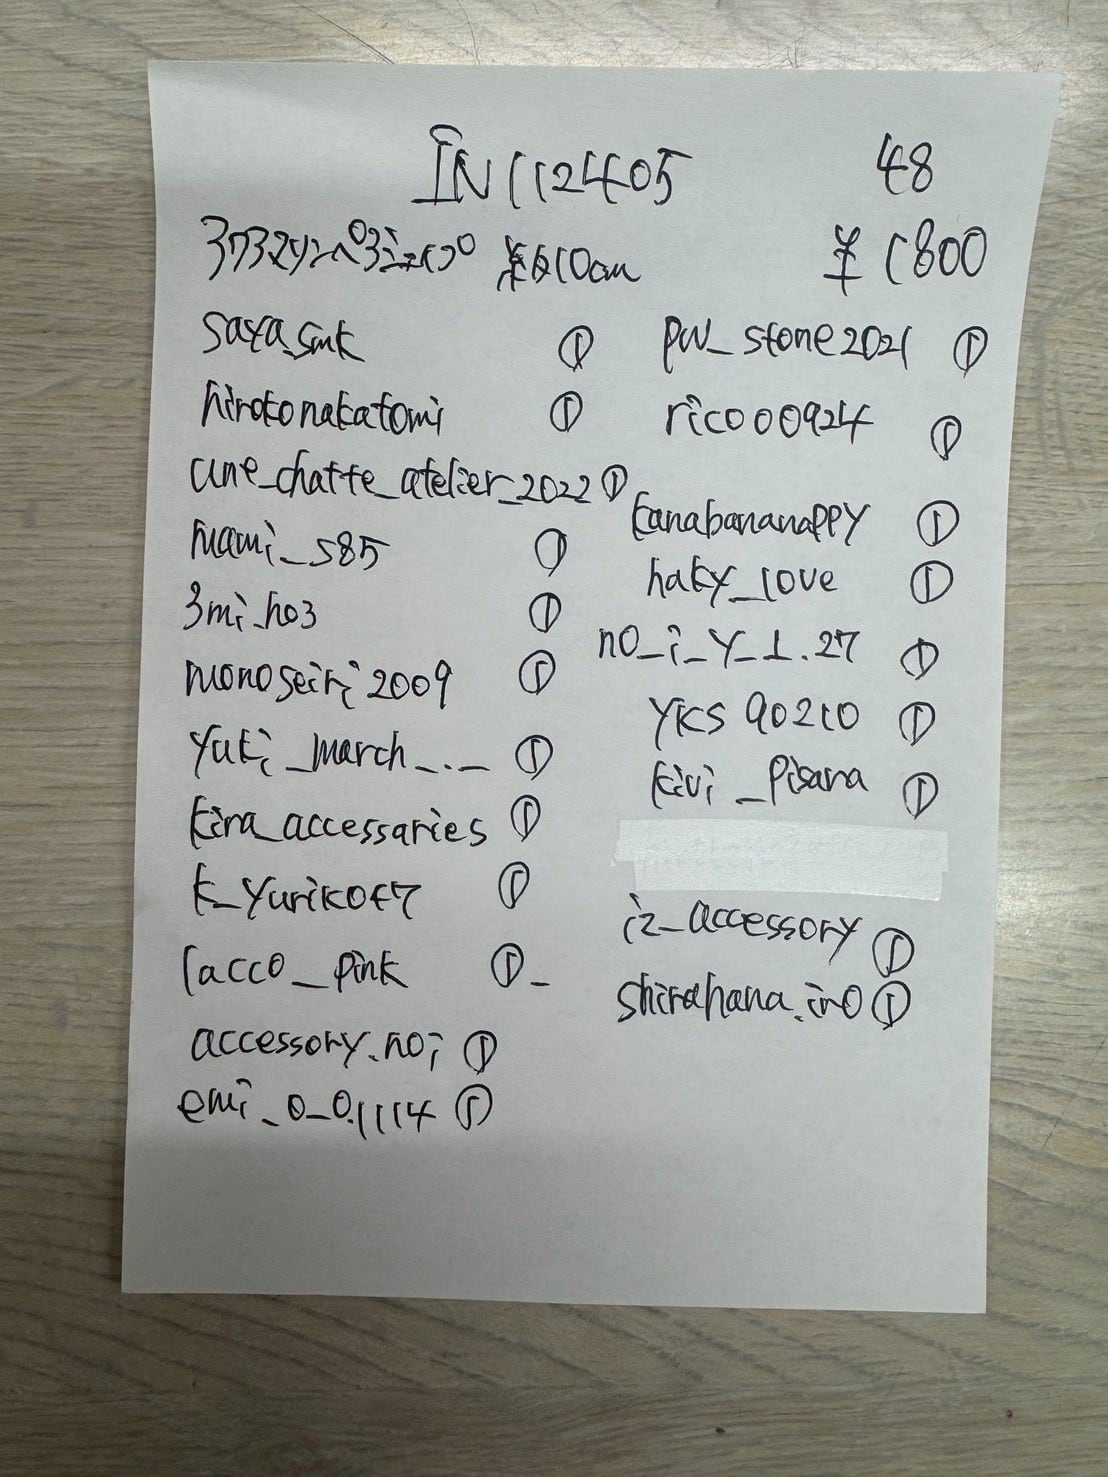 IN112405 48
アクアマリンペアシェイプ 約10cm ¥1800
saya.smk ①
hirokonakatomi ①
une_chatte_atelier_2022 ①
mami_s85 ①
3mi_ho3 ①
monoseiri2009 ①
yuki_march_._ ①
kira_accessaries ①
k_yurikof7 ①
lacco_pink ①
accessory.noi ①
emi_0_0.1114 ①
pw_stone2021 ①
rico00924 ①
kanabananappy ①
haky_love ①
no_i_y_1.27 ①
yks90210 ①
kivi_pisara ①
iz_accessory ①
shirahana.iro ①